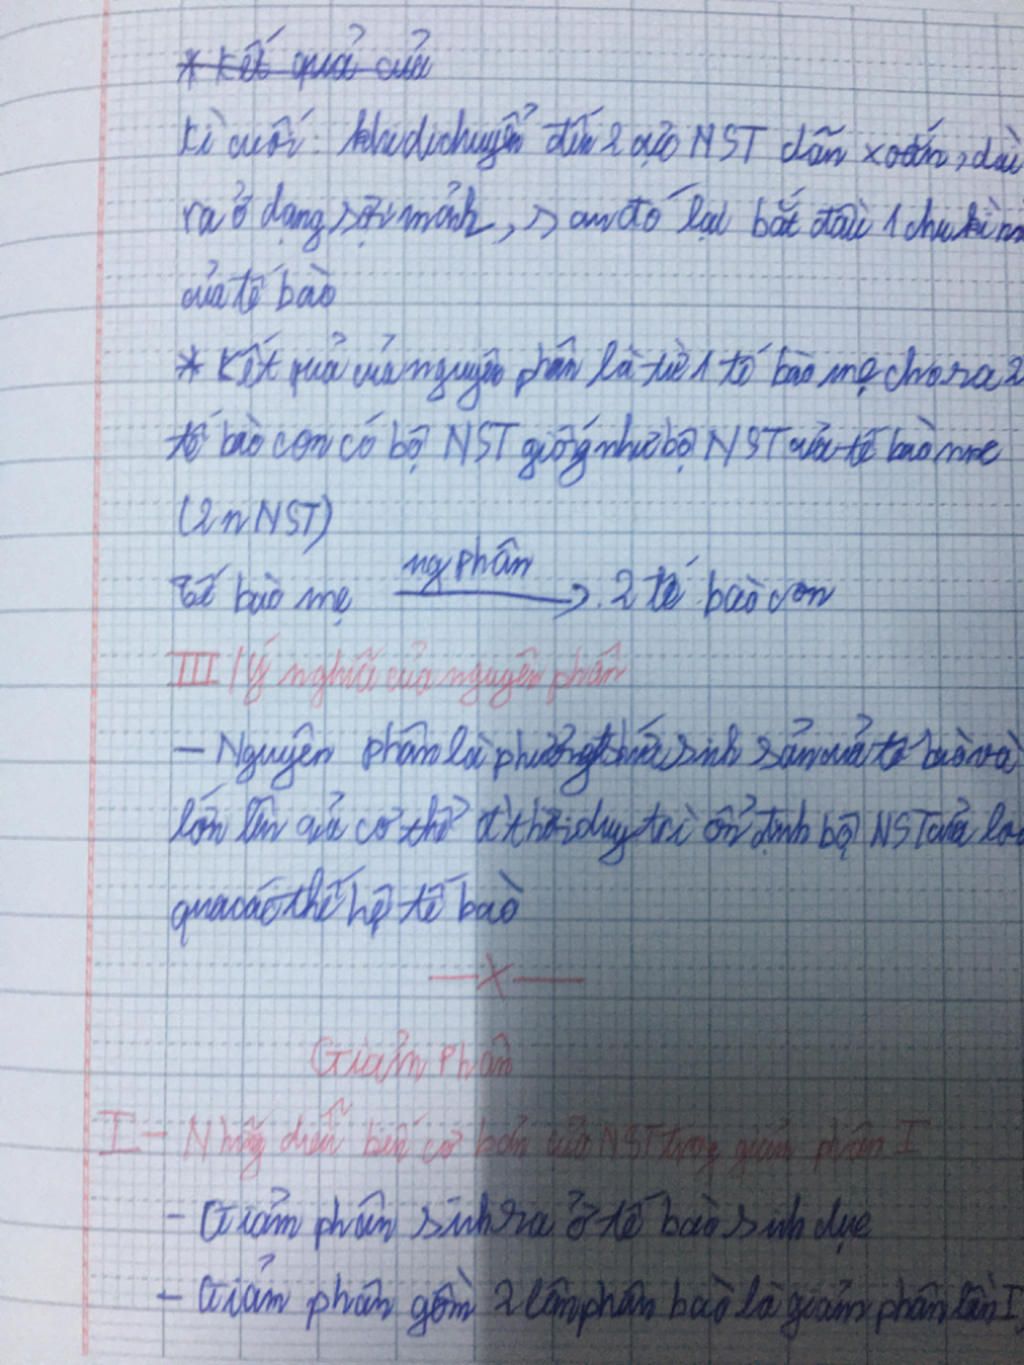 * Kết quả của
Kì cuối: khi di chuyển đến 2 cực NST dãn xoắn, dài
ra ở dạng sợi mảnh, sau đó lại bắt đầu 1 chu kì
của tế bào
* Kết quả của nguyên phân là từ 1 tế bào mẹ cho ra 2
tế bào con có bộ NST giống như bộ NST của tế bào mẹ
(2n NST)
Tế bào mẹ ng phân → 2 tế bào con
III / Ý nghĩa của nguyên phân
- Nguyên phân là phương thức sinh sản của tế bào và
lớn lên của cơ thể đ thời duy trì ổn định bộ NST của
qua các thế hệ tế bào
—X—
Giảm phân
I- Những diễn biến cơ bản của NST trong giảm phân I
- Giảm phân sinh ra ở tế bào sinh dục
- Giảm phân gồm 2 lần phân bào là giảm phân lần I,